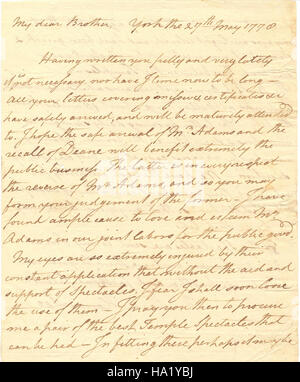 My dear Brother, York the 27th May 1778
Having written you fully and very lately
it's not necessary nor have I time now to be long —
all your letters covering
have safely arrived, and will be maturely attended
to. I hope the safe arrival of Mr. Adams and the
recall of Deane will benefit extremely the
public business. The latter is in every respect
the reverse of Mr. Adams, and so you may
form your judgement of the former — I have
found ample cause to love and esteem Mr.
Adams in our joint labors for the public good.
My eyes are so extremely injured by their
constant application that without the aid and
support of Spectacles, I fear I shall soon loose
the use of them — I pray you then to procure
me a pair of the best Temple Spectacles that
can be had — In fitting these perhaps it may be
alamy
Image ID: HA1YBJ
www.alamy.com